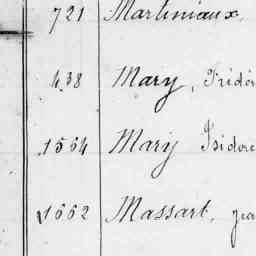 721 Martiniaux,
438 Mary, Frédér
1564 Mary Isidore
1662 Massart, Jea